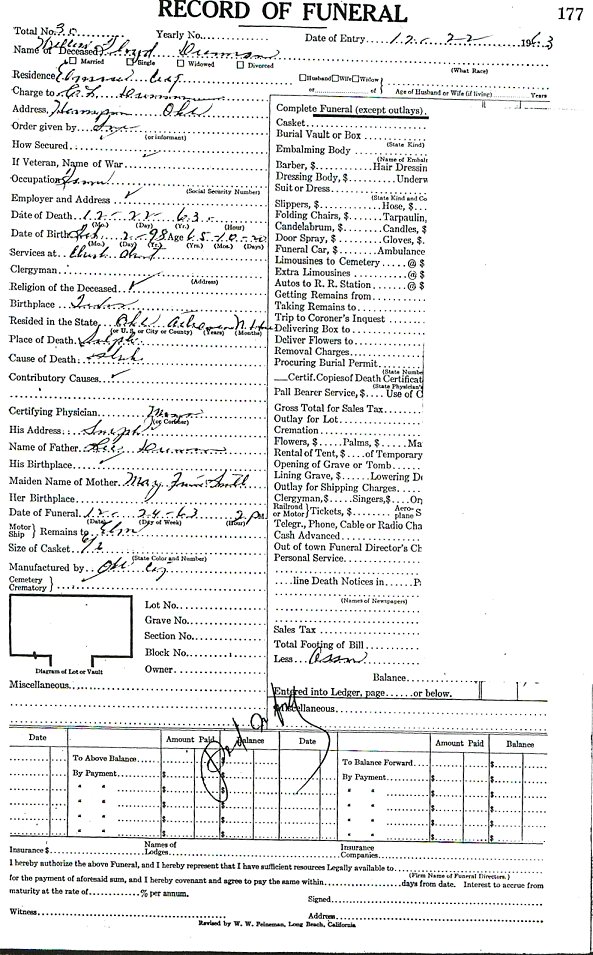 RECORD OF FUNERAL 177
Total No. 30 Yearly No. Date of Entry 12-22 1963
Name of Deceased Floyd
Married Single Widowed Divorced (What Race)
Residence City Husband Wife Widow
or of Age of Husband or Wife (if living) Years
Charge to
Address, Okla
Order given by
(or informant)
How Secured
If Veteran, Name of War
Occupation
(Social Security Number)
Employer and Address
Date of Death 12-22 63
(Mo.) (Day) (Yr.) (Hour)
Date of Birth 2-98 Age 65-10-20
(Mo.) (Day) (Yr.) (Yrs.) (Mos.) (Days)
Services at
Clergyman
(Address)
Religion of the Deceased
Birthplace
Resided in the State Okla
(or U. S. or City or County) (Years) (Months)
Place of Death
Cause of Death
Contributory Causes
Certifying Physician
(or Coroner)
His Address
Name of Father
His Birthplace
Maiden Name of Mother May Smith
Her Birthplace
Date of Funeral 12-24-63 2 pm
(Date) (Day of Week) (Hour)
Motor Ship Remains to Elm
Size of Casket 6/2
(State Color and Number)
Manufactured by
Cemetery Crematory
Lot No.
Grave No.
Section No.
Block No.
Owner
Diagram of Lot or Vault
Miscellaneous
Complete Funeral (except outlays)
Casket
Burial Vault or Box
(State Kind)
Embalming Body
(Name of Embalr
Barber, $ Hair Dressin
Dressing Body, $ Underw
Suit or Dress
(State Kind and Co
Slippers, $ Hose, $
Folding Chairs, $ Tarpaulin,
Candelabrum, $ Candles, $
Door Spray, $ Gloves, $
Funeral Car, $ Ambulance
Limousines to Cemetery @ $
Extra Limousines @ $
Autos to R. R. Station @ $
Getting Remains from
Taking Remains to
Trip to Coroner's Inquest
Delivering Box to
Deliver Flowers to
Removal Charges
Procuring Burial Permit
(State Numbe
Certif. Copies of Death Certificat
(State Physician's
Pall Bearer Service, $ Use of C
Gross Total for Sales Tax
Outlay for Lot
Cremation
Flowers, $ Palms, $ Ma
Rental of Tent, $ of Temporary
Opening of Grave or Tomb
Lining Grave, $ Lowering De
Outlay for Shipping Charges
Clergyman, $ Singers, $ Or
Railroad or Motor Tickets, $ Aero-plane $
Telegr., Phone, Cable or Radio Cha
Cash Advanced
Out of town Funeral Director's Ch
Personal Service
line Death Notices in P
(Names of Newspapers)
Sales Tax
Total Footing of Bill
Less Assn
Balance
Entered into Ledger, page or below.
Miscellaneous
Date Amount Paid Balance Date Amount Paid Balance
To Above Balance $ To Balance Forward $
By Payment $ By Payment $
" " $ " " $
" " $ " " $
" " $ " " $
" " $ " " $
Insurance $ Names of Lodges Insurance Companies
I hereby authorize the above Funeral, and I hereby represent that I have sufficient resources Legally available to
(Firm Name of Funeral Directors.)
for the payment of aforesaid sum, and I hereby covenant and agree to pay the same within days from date. Interest to accrue from
maturity at the rate of % per annum. Signed
Witness Address
Revised by W. W. Feineman, Long Beach, California